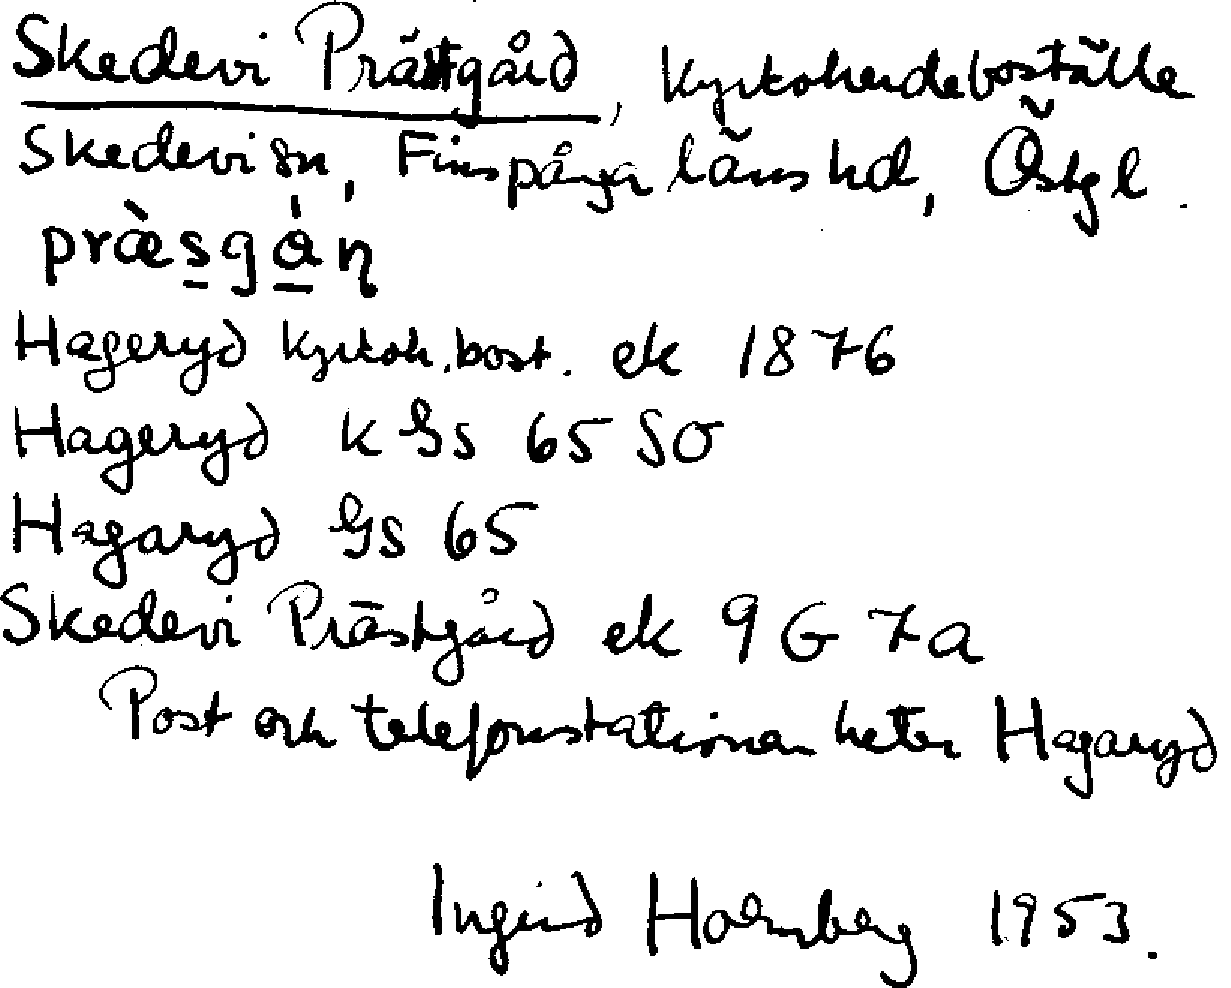 Skedevi Prästgård, Kyrkoherdeboställe
Skedevi sn, Finspånga läns hd, Östgl.
præ̀sgàn
Hageryd kyrkoh.bost. ek 1876
Hageryd k Gs 65 SO
Hagaryd Gs 65
Skedevi Prästgård ek 9 G 7a
Post och telefonstationen heter Hagaryd
Ingrid Holmberg 1953.